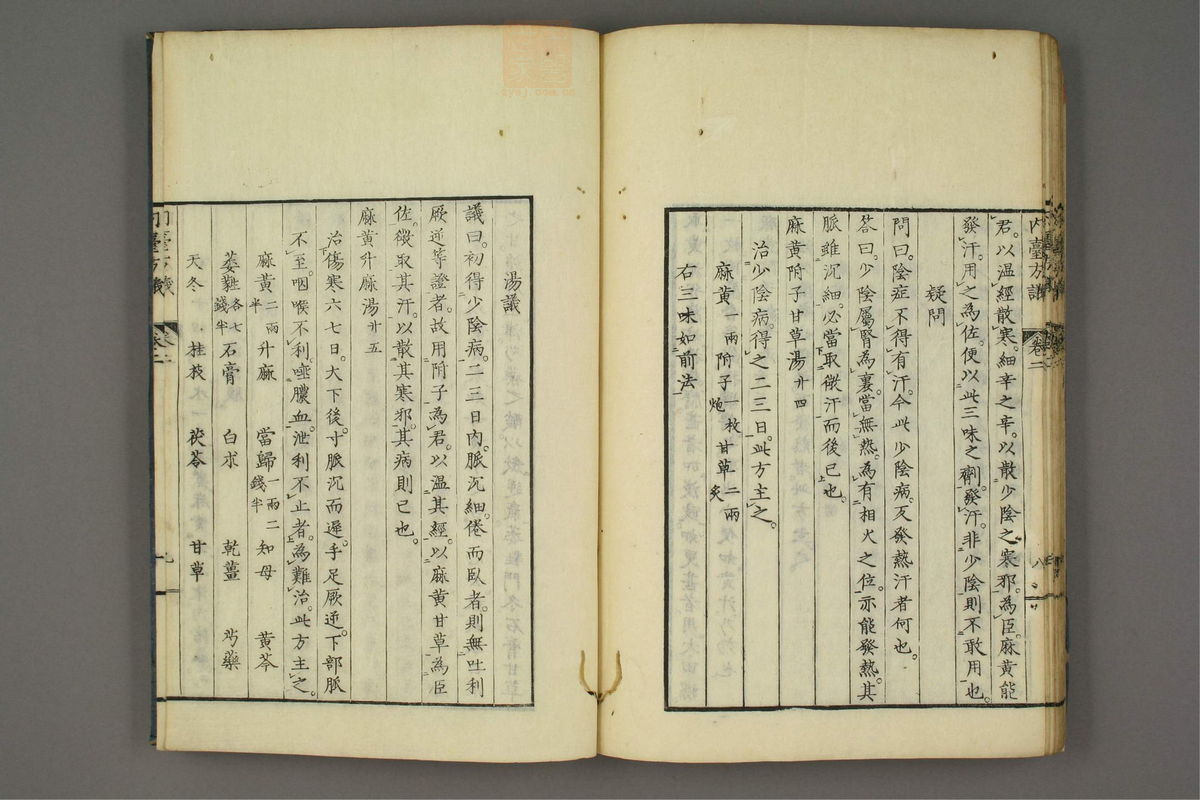 内臺方議 卷二 八
君。以温經散寒。細辛之辛。以散少陰之寒邪。為臣。麻黄能
發汗。用之為佐。使以此三味之劑。發汗。非少陰則不敢用也。
疑問
問曰。陰症不得有汗。今此少陰病。反發熱汗者何也。
答曰。少陰屬腎為裏。當無热。為有相火之位。亦能發熱其
脈雖沉細。必當取微汗而後已也。
麻黄附子甘草湯廿四
治少陰病。得之二三日。此方主之。
麻黄一兩 附子一枚炮 甘草二兩炙
右三味如前法
湯議
議曰。初得少陰病。二三日内。脈沉細倦而臥者。則無吐利
厥逆等證者。故用附子為君。以温其經。以麻黄甘草為臣
佐。微取其汗。以散其寒邪。其病則已也。
麻黄升麻湯廿五
治傷寒六七日。大下後。寸脈沉而遲。手足厥逆。下部脈
不至。咽喉不利。唾膿血。泄利不止者。為難治。此方主之。
麻黄二兩半 升麻 當歸一兩二錢半 知母 黄芩
萎蕤各七錢半 石膏 白朮 乾薑 芍藥
天冬 桂枝 茯苓 甘草
内臺方議 卷二